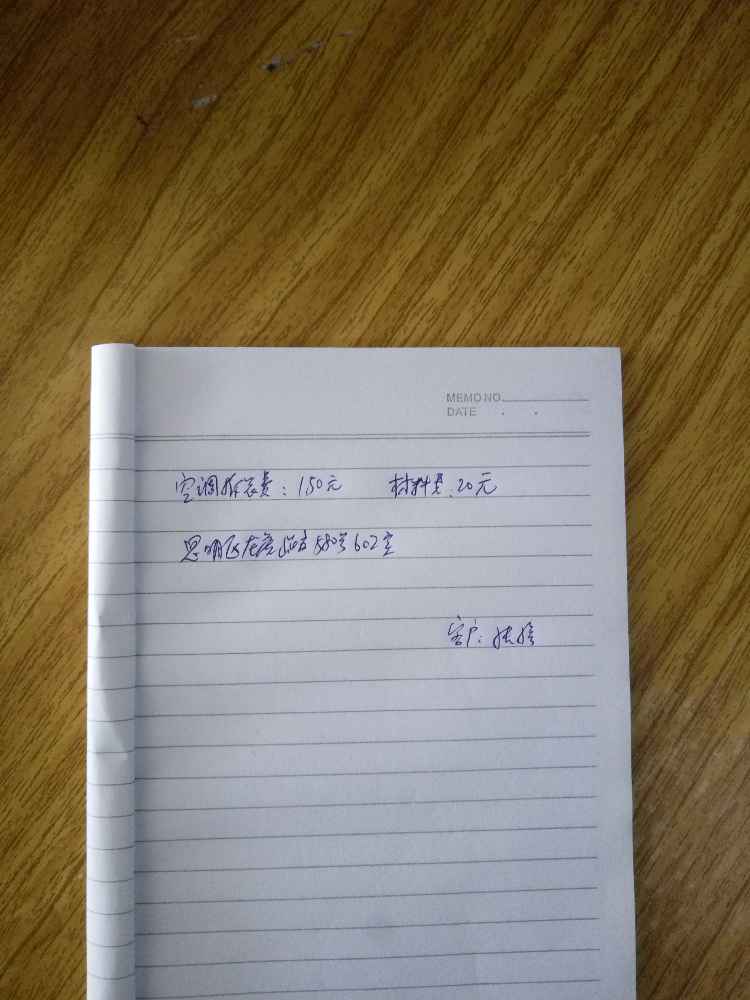 MEMO NO.
DATE . .
空调拆装费：150元 材料费：20元
思明区 580号602室
客户：